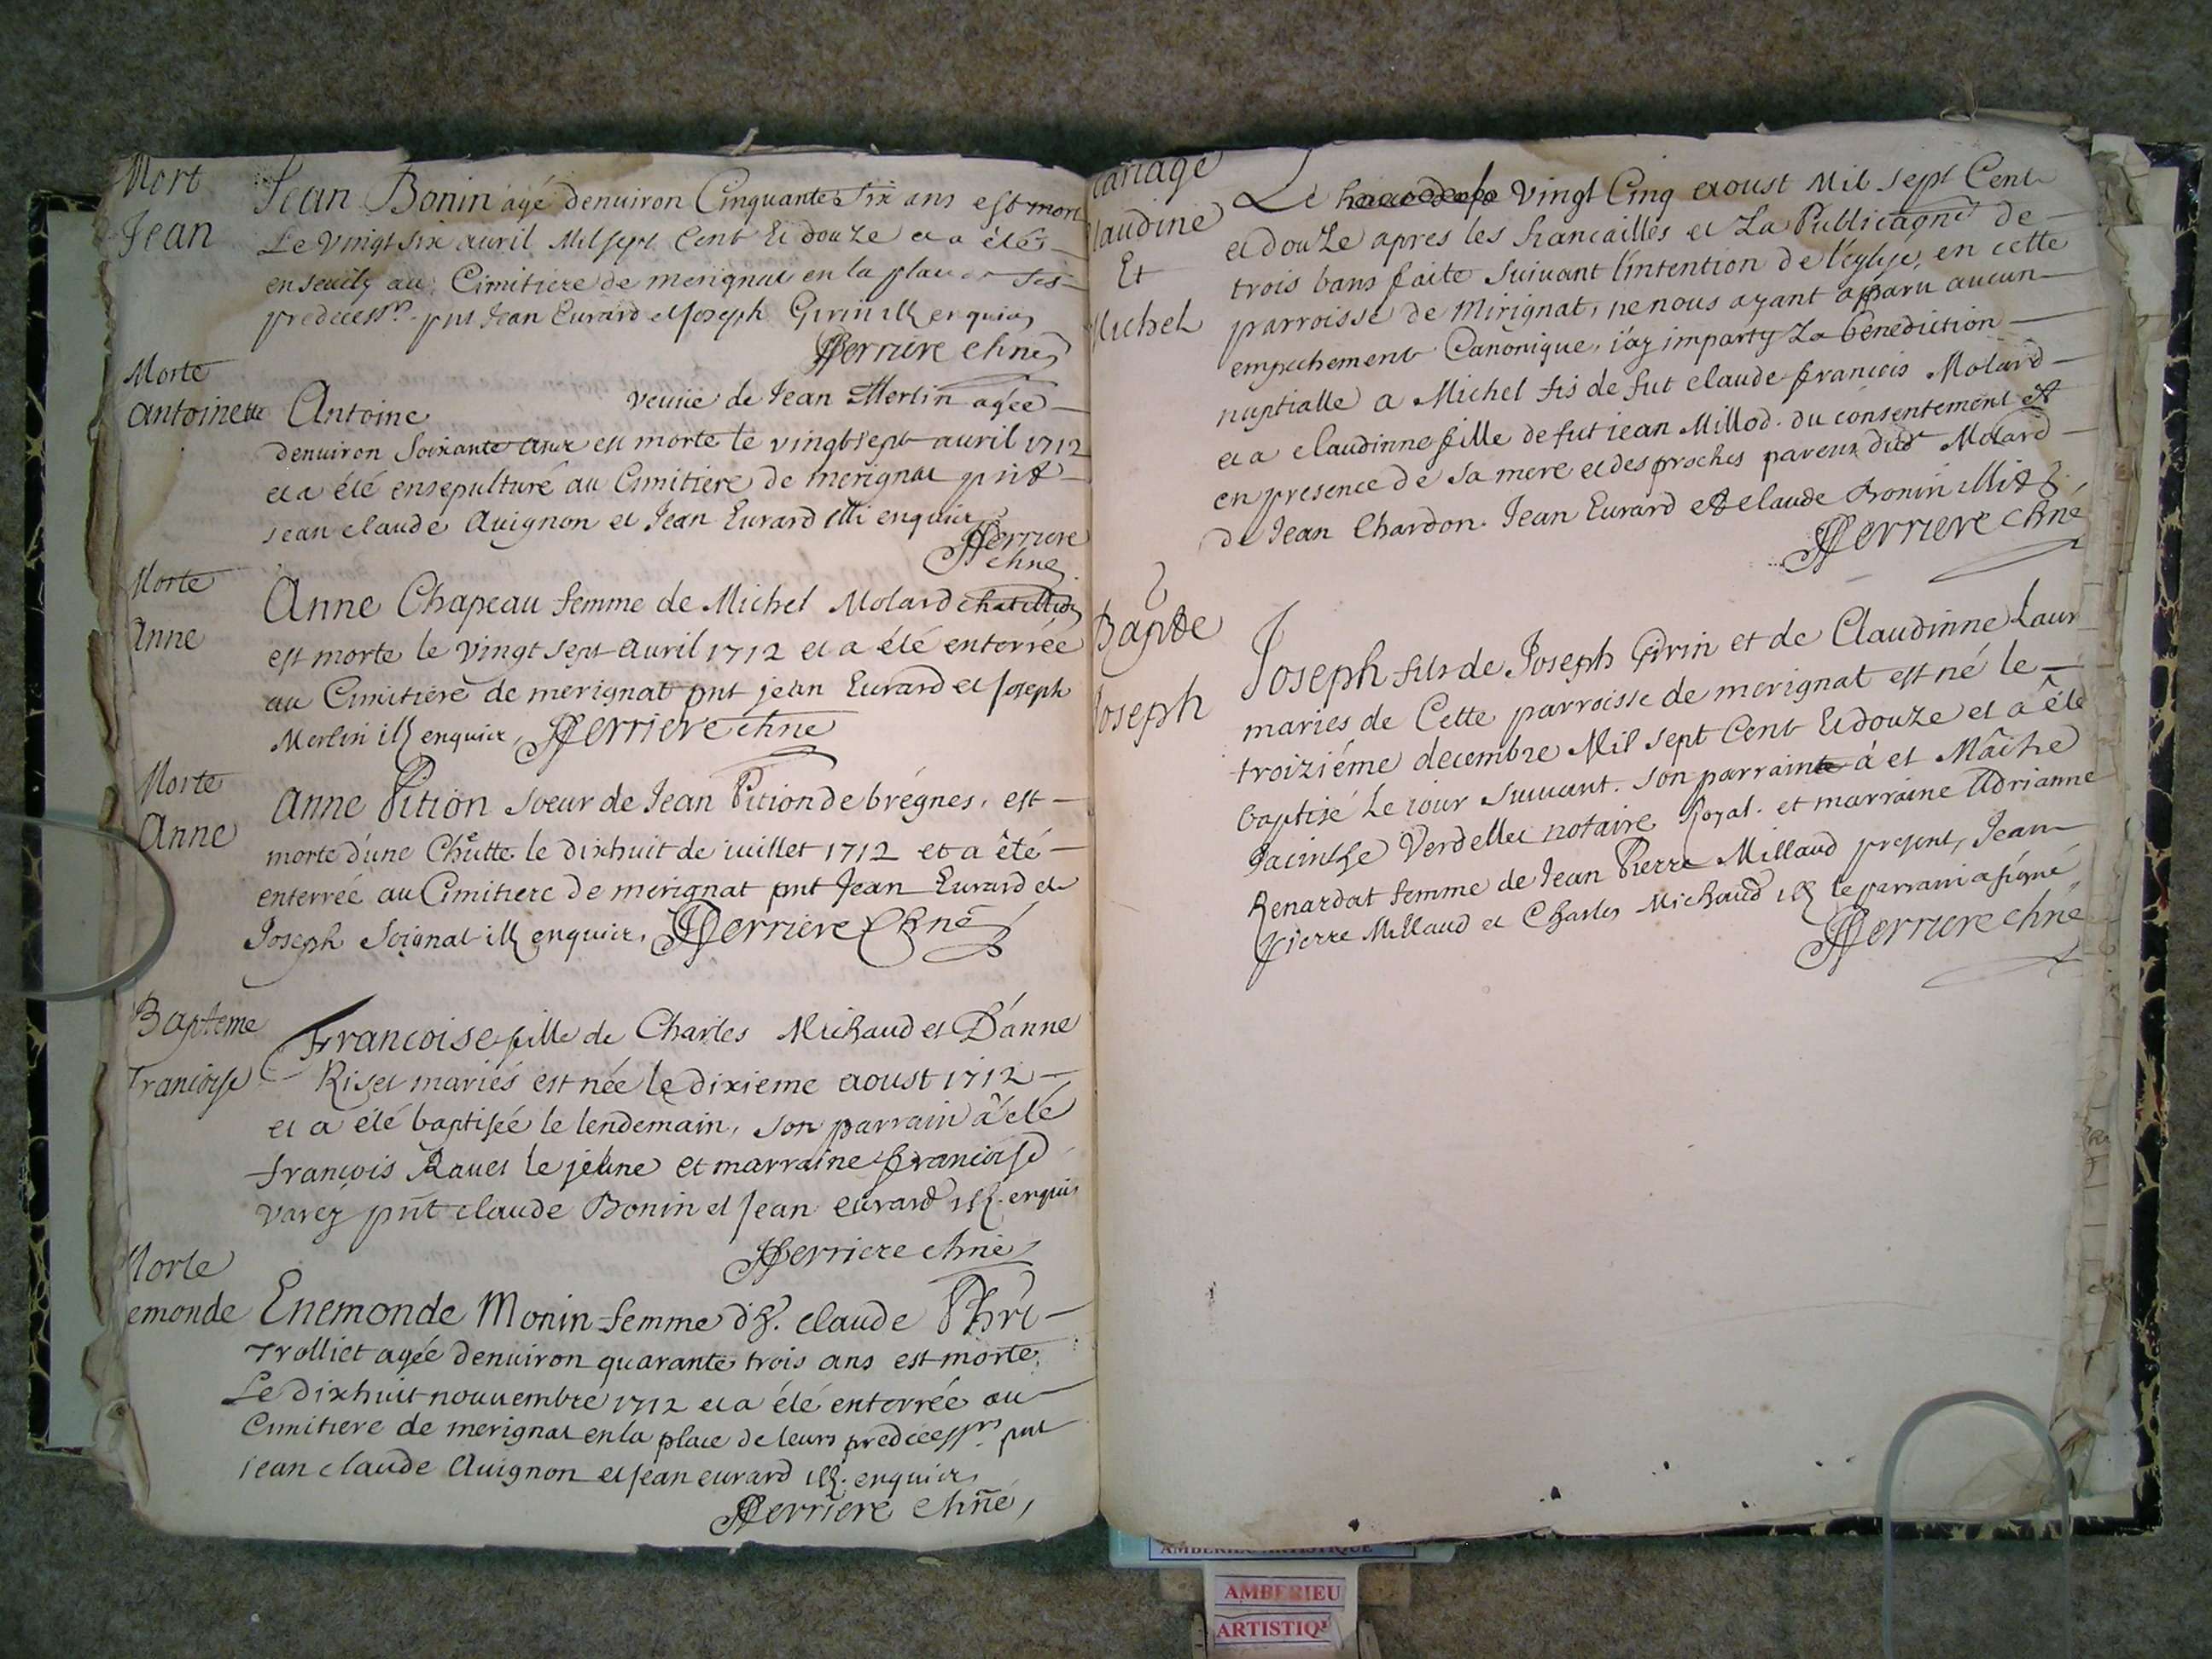 Mort
Jean
Jean Bonin agé denuiron Cinquante Six ans est mort
Le vingt six auril Mil sept Cent Et douze et a étés
enseuely au Cimitiere de merignat en la place de ses
predecess.rs pnt Jean Eurard et Joseph Girin ill enquis
Perriere
Morte
antoinette
Antoine veuue de Jean Merlin agée
denuiron Soixante ans est morte le vingtsept auril 1712
et a été ensepulturé au Cimitiere de merignat
jean claude Auignon et Jean Eurard illi enquis
Perriere
Morte
Anne
Anne Chapeau femme de Michel Molard
est morte le vingt sept Auril 1712 et a été enterrée
au Cimitiere de merignat pnt jean Eurard et Joseph
Merlin ill enquis, Perriere
Morte
Anne
Anne Pition soeur de Jean Pition de brégnes, est
morte dune Chutte le dixhuit de iuillet 1712 et a été
enterrée au Cimitiere de merignat pnt Jean Eurard et
Joseph Soignat ill enquis, Perriere
Bapteme
francoise
Francoise fille de Charles Michaud et D'anne
Riset mariés est née le dixieme aoust 1712
et a été baptisée le lendemain, son parrain a été
francois Rauet le jeune et marraine francoise
varey pnt claude Bonin et Jean eurard ill. enquis
Perriere
Morte
emonde
Enemonde Monin femme d'h. claude
Trolliet agée denuiron quarante trois ans est morte
Le dixhuit nouuembre 1712 et a été enterrée au
Cimitiere de merignat en la place de leurs predecess.rs pnt
jean claude Auignon et jean eurard ill. enquis
Perriere
ariage
laudine
Et
Michel
Le vingt Cinq aoust Mil sept Cent
et douze apres les fiancailles et La Publicãone de
trois bans faite suiuant l'intention de l'eglise, en cette
parroisse de Mirignat, ne nous ayant apparu aucun
empechement Canonique, i'ay imparty La benediction
nuptialle a Michel fis de fut claude francois Molard
et a claudinne fille de fut iean Millod. du consentement et
en presence de sa mere et des proches parens dud. Molard
de Jean Chardon. Jean Eurard et claude Bonin
Perriere
Bapte
Joseph
Joseph fils de Joseph Girin et de Claudinne Laur
mariés de Cette parroisse de merignat est né le
troiziéme decembre Mil sept Cent Et douze et a été
baptisé Le iour suiuant. son parrain á et Mâitre
Jacinthe Verdellet notaire Royal. et marraine Adrianne
Renardat femme de Jean Pierre Millaud present, Jean
Pierre Millaud et Charles Michaud ill le parrain a signé
Perriere
AMBERIEU ARTISTIQUE
AMBERIEU
ARTISTIQU